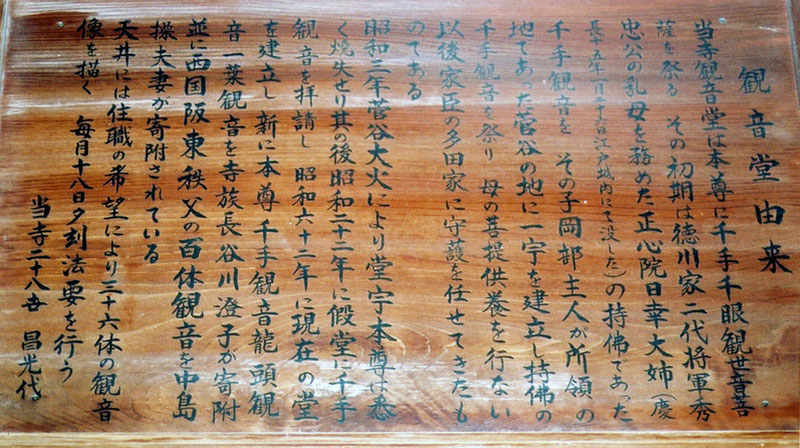 観音堂由来
当寺観音堂は本尊に千手千眼観世音菩
薩を祭る その初期は徳川家二代将軍秀
忠公の乳母を務めた正心院日幸大姉(慶
長十五年一月二十六日江戸城内にて没した)の持佛であった
千手観音を その子岡部主人が所領の
地であった菅谷の地に一宇を建立し持佛の
千手観音を祭り 母の菩提供養を行ない
以後家臣の多田家に守護を任せてきたも
のである
昭和三年菅谷大火により堂宇本尊は悉
く焼失せり其の後昭和二十二年に假堂に千手
観音を拝請し 昭和六十二年に現在の堂
を建立し新に本尊千手観音龍頭観
音一葉観音を寺族長谷川澄子が寄附
並に西国阪東秩父の百体観音を中島
操夫妻が寄附されている
天井には住職の希望により三十六体の観音
像を描く 毎月十八日夕刻法要を行う
当寺二十八世 昌光代